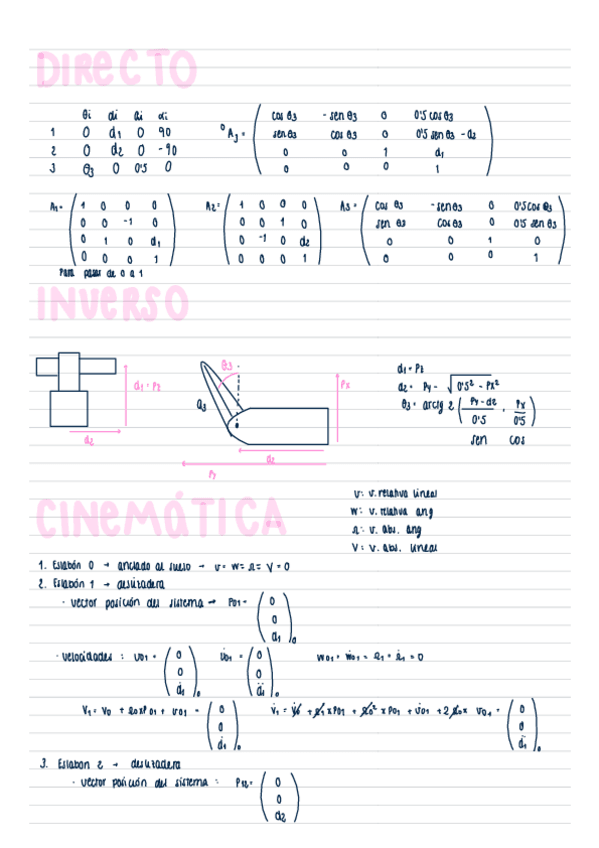 DIRECTO
θi di ai αi
1 0 d1 0 90
2 0 d2 0 -90
3 θ3 0 0'5 0
⁰A3 = ( cos θ3 - sen θ3 0 0'5 cos θ3
sen θ3 cos θ3 0 0'5 sen θ3 - d2
0 0 1 d1
0 0 0 1 )
A1 = ( 1 0 0 0
0 0 -1 0
0 1 0 d1
0 0 0 1 )
Para pasar de 0 a 1
A2 = ( 1 0 0 0
0 0 1 0
0 -1 0 d2
0 0 0 1 )
A3 = ( cos θ3 - sen θ3 0 0'5 cos θ3
sen θ3 cos θ3 0 0'5 sen θ3
0 0 1 0
0 0 0 1 )
INVERSO
d1 = Pz
d2
θ3
a3
Px
d2
d1 = Pz
d2 = Py - √ 0'5² - Px²
θ3 = arctg 2 ( Py - d2 / 0'5 , Px / 0'5 )
sen cos
CINEMÁTICA
v: v. relativa lineal
w: v. relativa ang
Ω: v. abs. ang
V: v. abs. lineal
1. Eslabón 0 → anclado al suelo → v = w = Ω = V = 0
2. Eslabón 1 → deslizadera
· Vector posición del sistema → P01 = ( 0
0
d1 )0
· Velocidades : v01 = ( 0
0
ḋ1 )0
v̇01 = ( 0
0
d̈1 )0
w01 = ẇ01 = Ω1 = Ω̇1 = 0
V1 = V0 + Ω0 x P01 + v01 = ( 0
0
ḋ1 )0
V̇1 = V̇0 + Ω̇1 x P01 + Ω0² x P01 + v̇01 + 2 Ω0 x v01 = ( 0
0
d̈1 )0
3. Eslabon 2 → deslizadera
· Vector posición del sistema : P12 = ( 0
0
d2 )